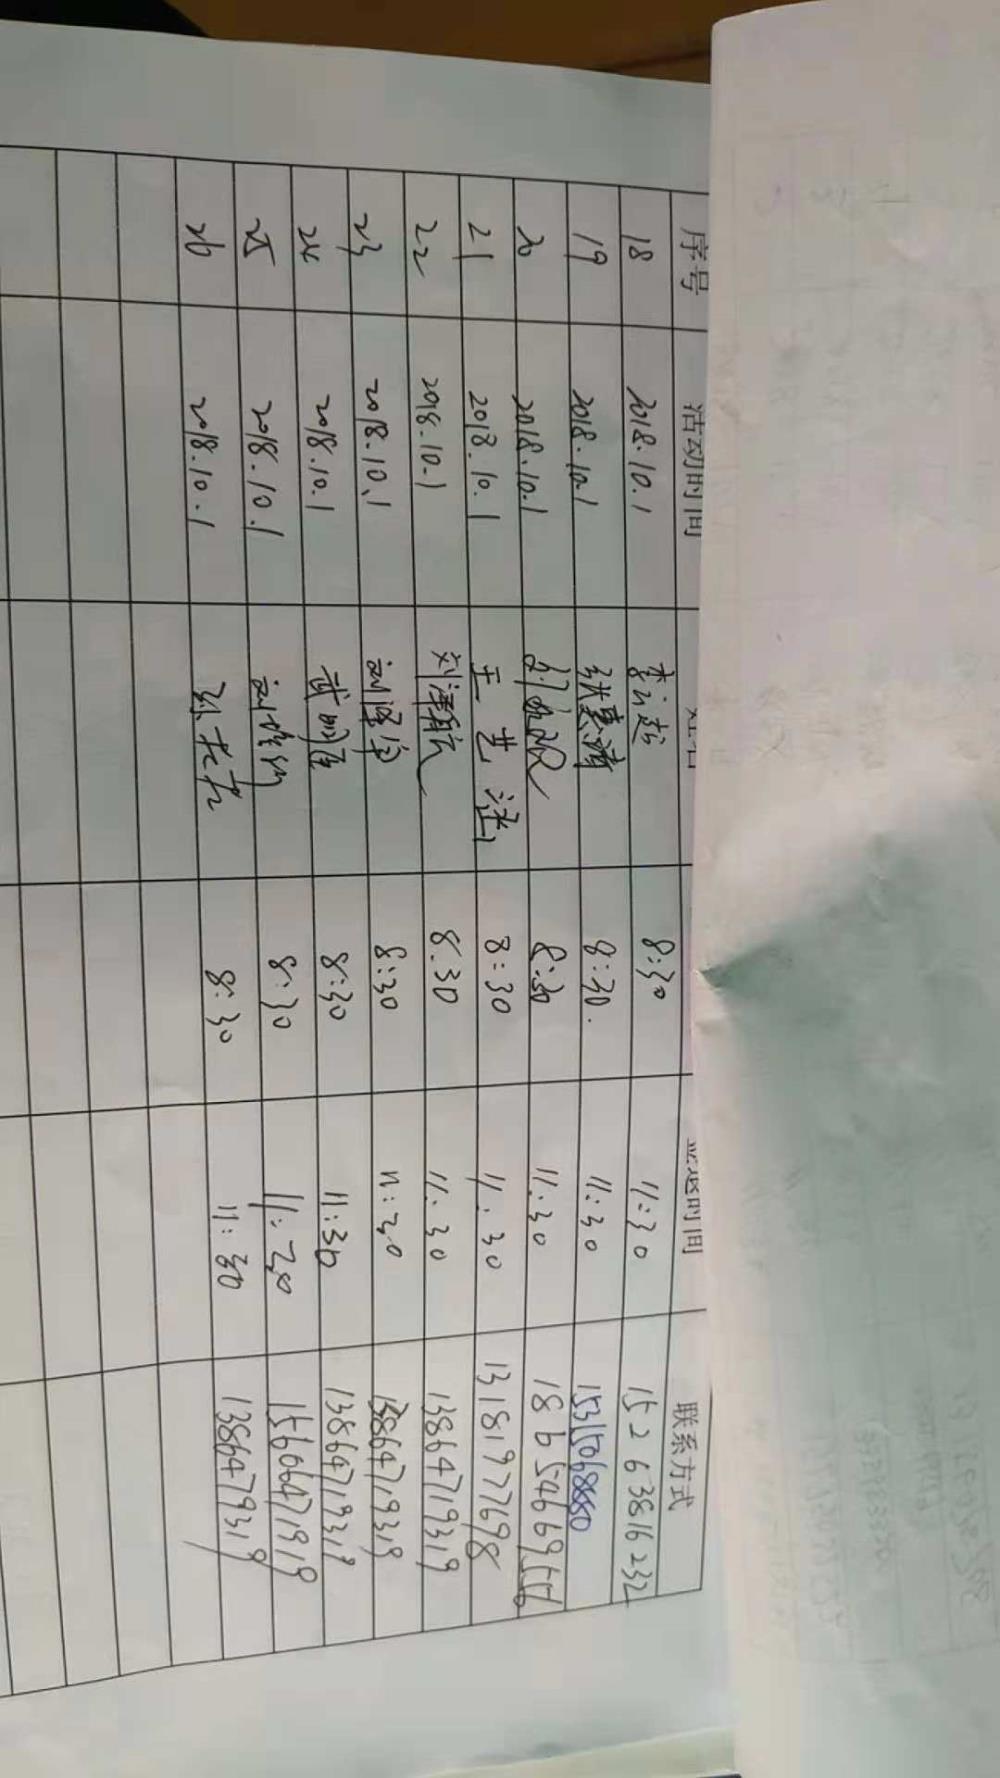 序号 活动时间 姓名 返时间 联系方式
18 2018.10.1 李云超 8:30 11:30 15263816232
19 2018.10.1 张惠清 8:30. 11:30 15315068880
20 2018.10.1 8:30 11:30 18654669556
21 2018.10.1 王艺潞 8:30 11:30 13181977698
22 2018.10.1 刘泽航 8:30 11:30 13864719319
23 2018.10.1 刘泽宇 8:30 11:30 13864719319
24 2018.10.1 8:30 11:30 13864719319
25 2018.10.1 8:30 11:30 15666471919
26 2018.10.1 8:30 11:30 13864719319